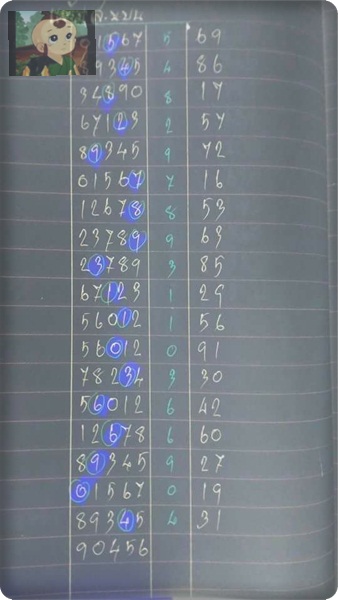 1567 5 69
9345 4 86
34890 8 17
67123 2 57
89345 9 72
01567 7 16
12678 8 53
23789 9 63
23789 3 85
67123 1 29
56012 1 56
56012 0 91
78234 3 30
56012 6 42
12678 6 60
89345 9 27
01567 0 19
89345 4 31
90456